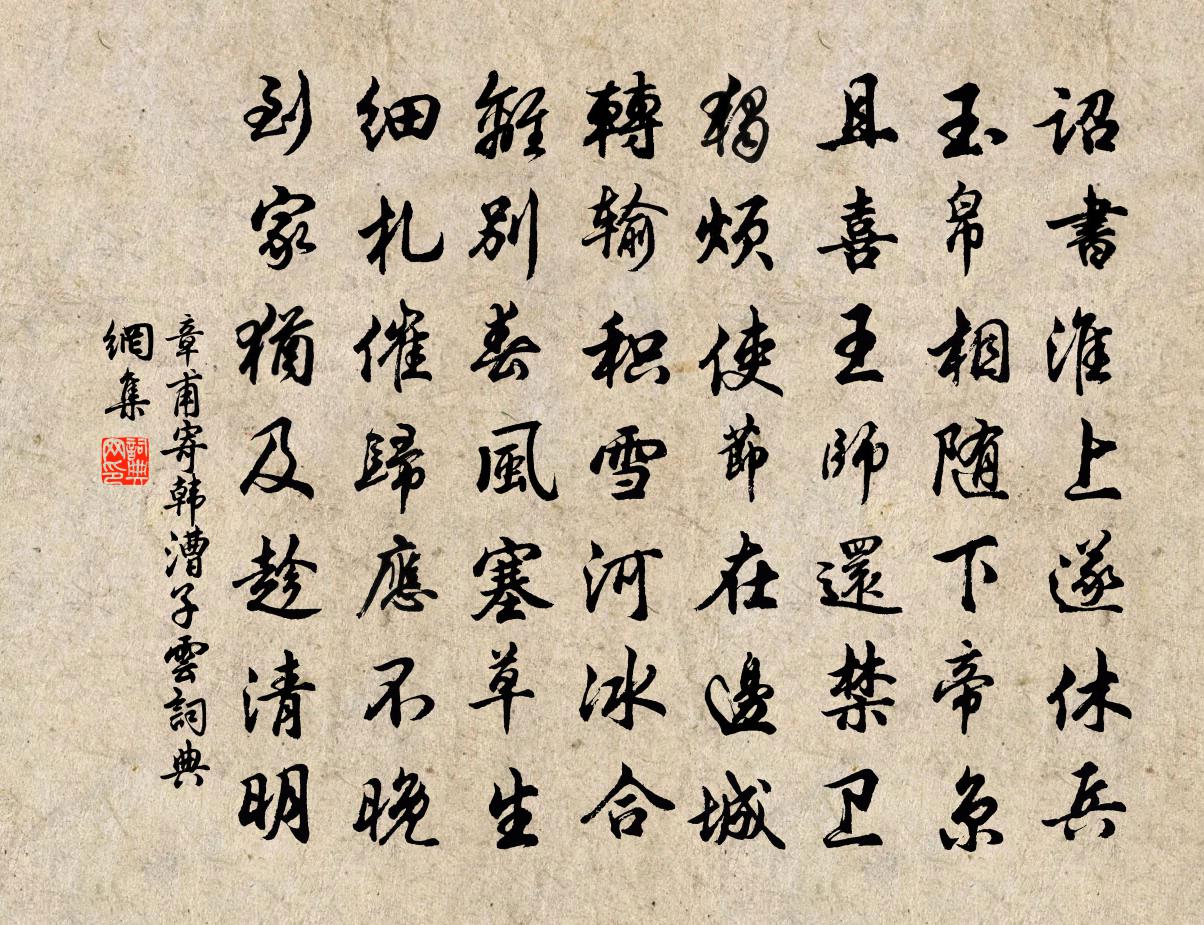 詔書淮上遂休兵
玉帛相随下帝京
且喜王師還禁卫
獨煩使節在邊城
轉输积雪河冰合
離別春風塞草生
细札催歸應不晚
到家猶及趁清明
章甫寄韩漕子雲詞典
網集
詞典
网印